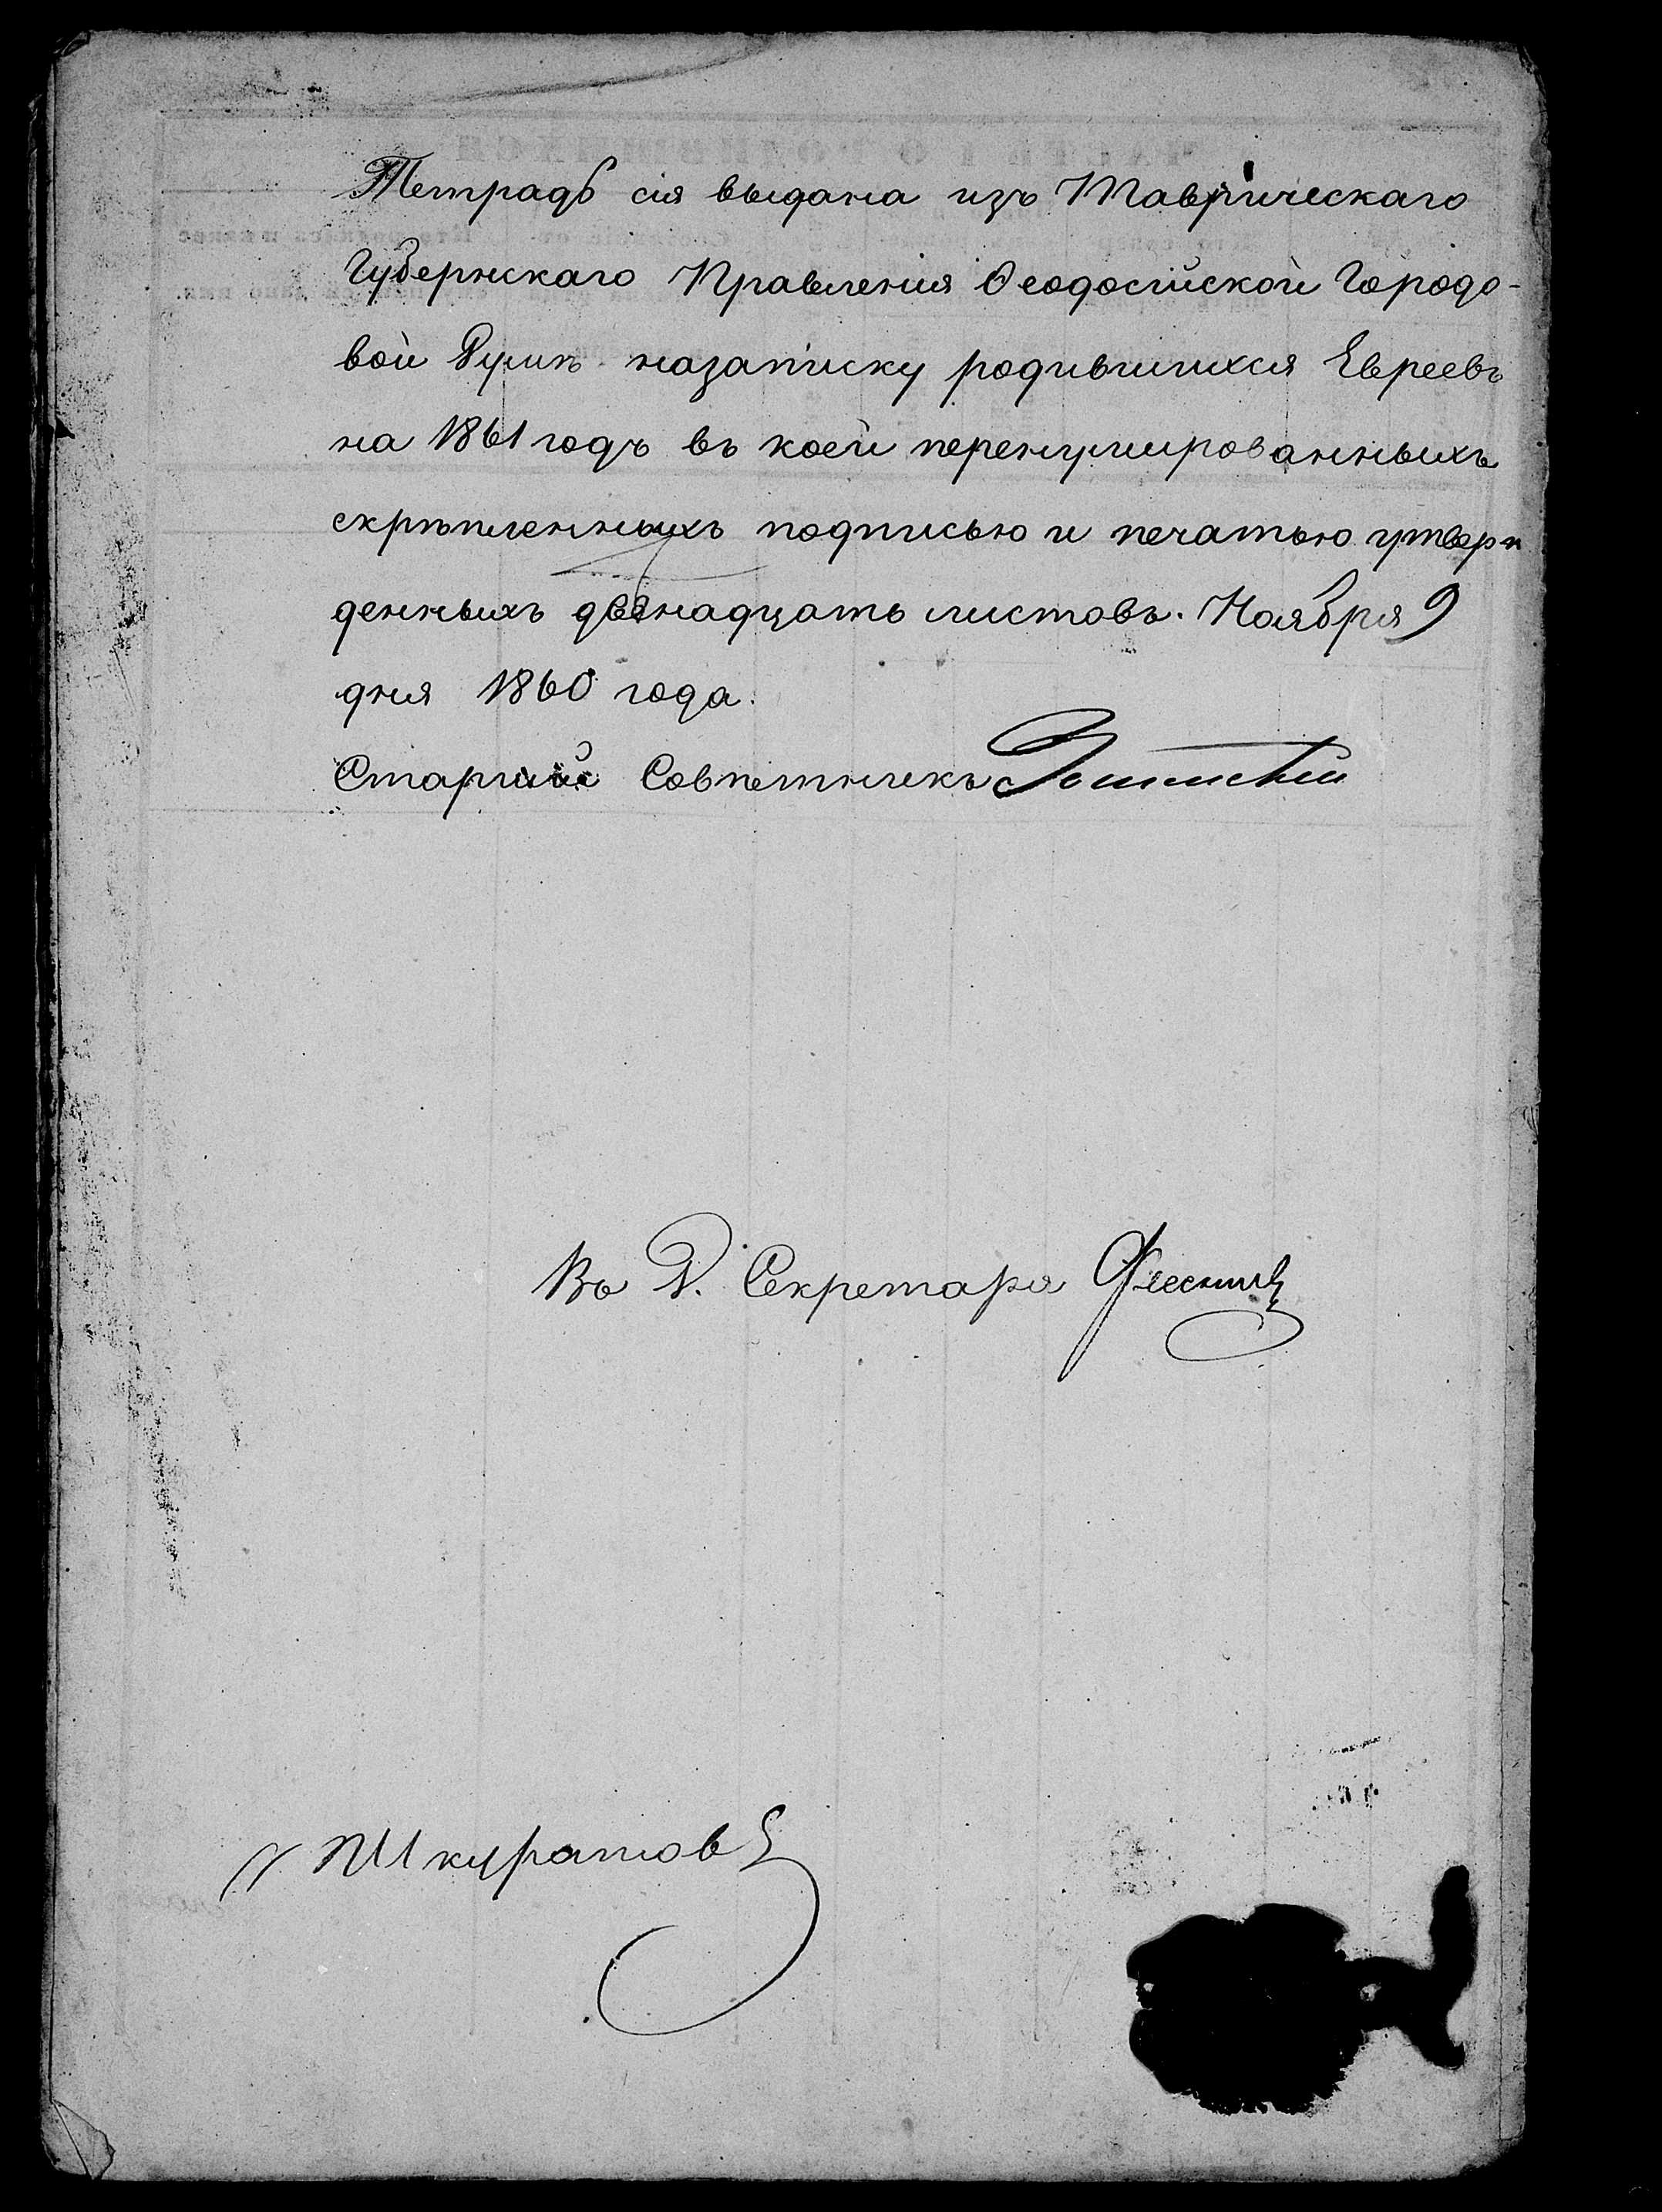 Тетрадь сія выдана изъ Таврическаго
Губернскаго Правленія Ѳеодосійской Городо-
вой Думѣ назаписку родившихся Евреевъ
на 1861 годъ въ коей перенумированныхъ
скрѣпленныхъ подписью и печатью утверж
денныхъ двѣнадцать листовъ. Ноября 9
дня 1860 года.
Старшій Совѣтникъ
Въ Д. Секретаря
Шкуратовъ